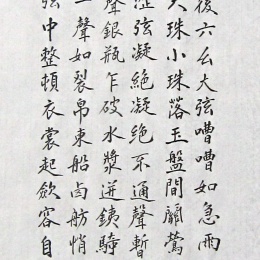 後六幺大弦嘈嘈如急雨
大珠小珠落玉盤間關鶯
澀弦凝絕凝絕不通聲暫
聲銀瓶乍破水漿迸鐵騎
一聲如裂帛東船西舫悄
弦中整頓衣裳起斂容自